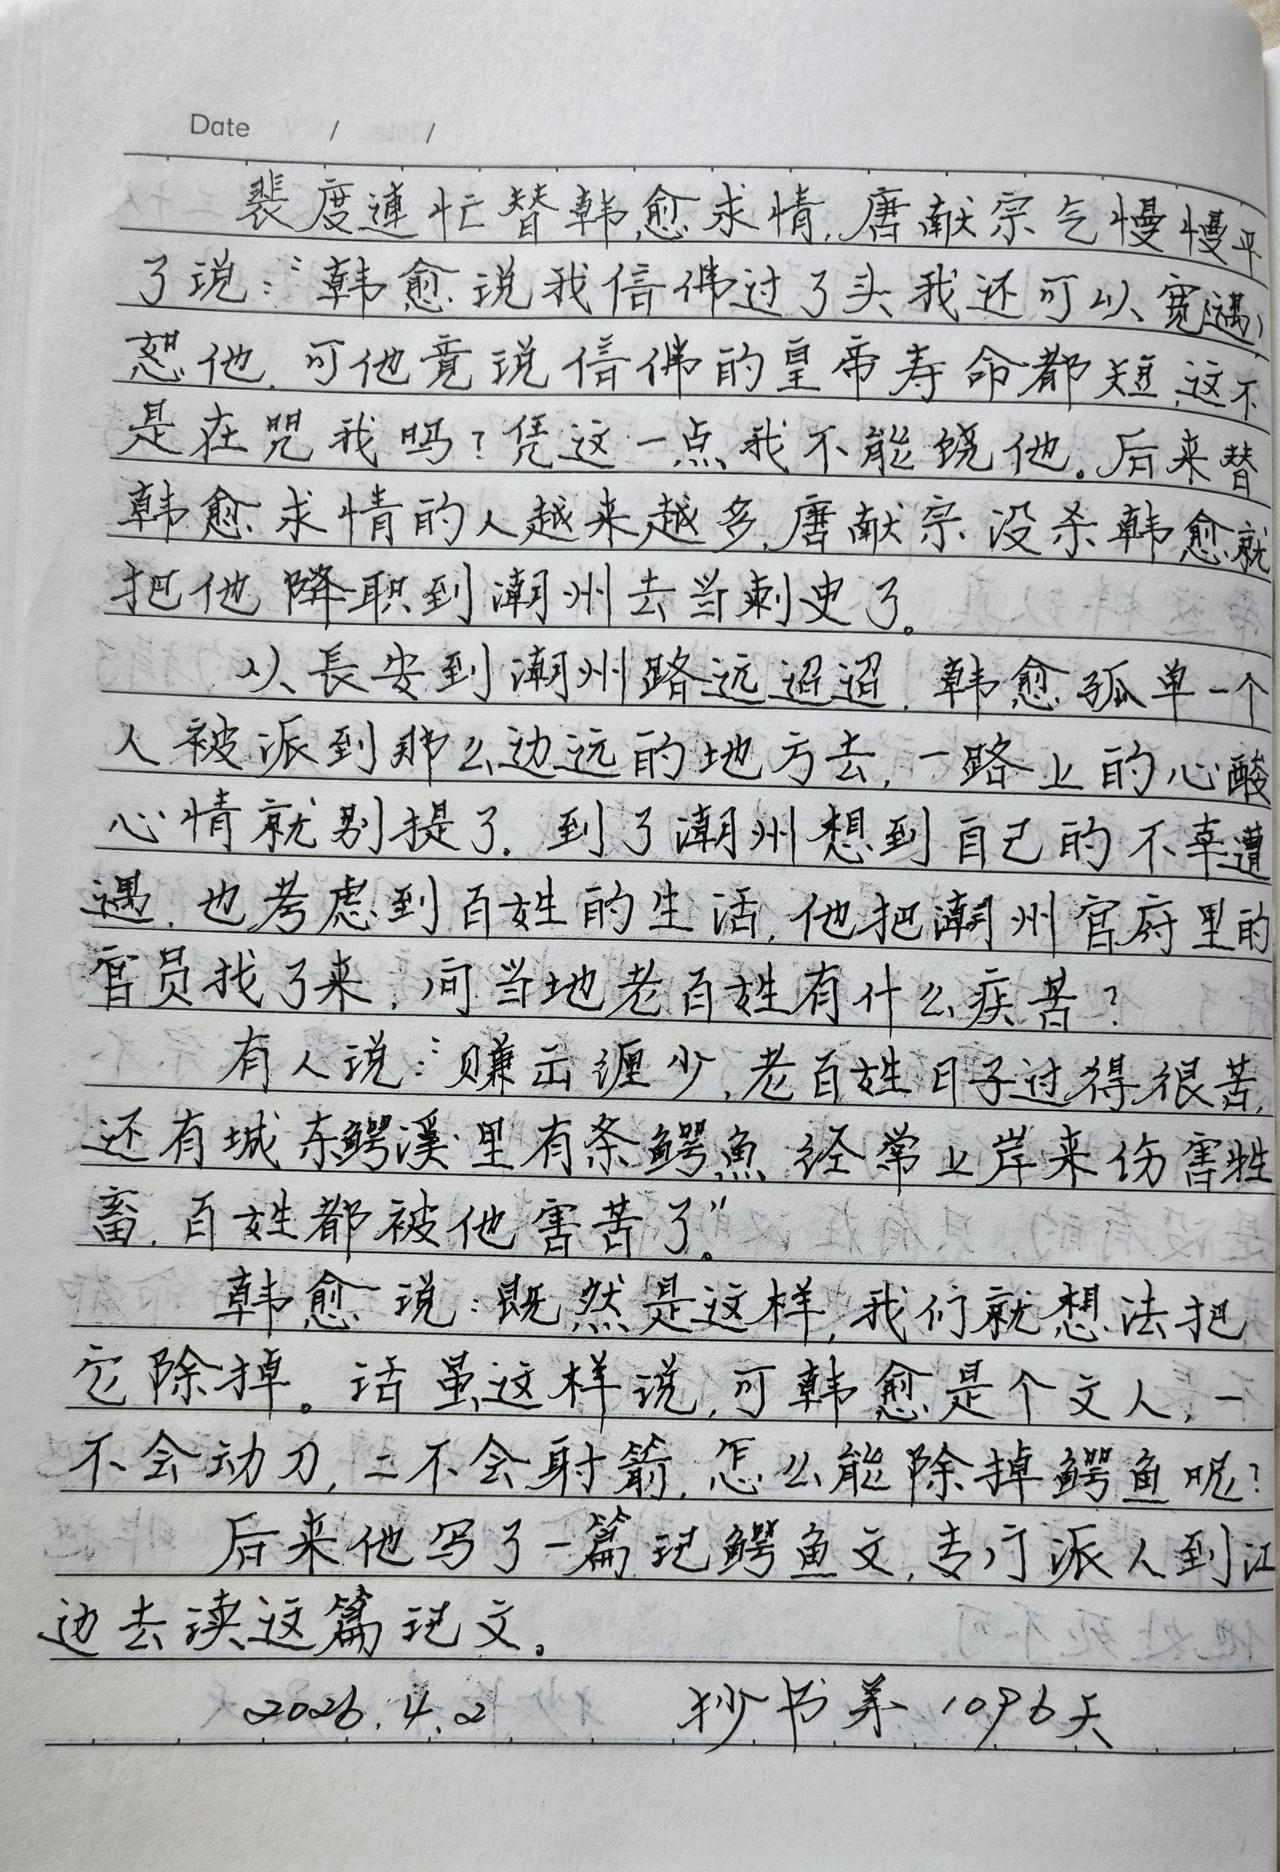 Date / /
裴度連忙替韩愈求情,唐献宗气慢慢平
了说:“韩愈说我信佛过了头我还可以宽遇
恕他,可他竟说信佛的皇帝寿命都短,这不
是在咒我吗?凭这一点我不能饶他。后来替
韩愈求情的人越来越多,唐献宗没杀韩愈就
把他降职到潮州去当刺史了。
从長安到潮州路远迢迢,韩愈孤单一个
人被派到那么边远的地方去,一路上的心酸
心情就别提了.到了潮州想到自己的不幸遭
遇,也考虑到百姓的生活,他把潮州官府里的
官员找了来,问当地老百姓有什么疾苦?
有人说:“赚出缠少,老百姓日子过得很苦,
还有城东鳄溪里有条鳄魚经常上岸来伤害牲
畜,百姓都被他害苦了”。
韩愈说:既然是这样,我们就想法把
它除掉。话虽这样说,可韩愈是个文人,一
不会动刀,二不会射箭,怎么能除掉鳄鱼呢?
后来他写了一篇祀鳄鱼文,专门派人到江
边去读这篇祀文。
2026.4.2 抄书第1096天